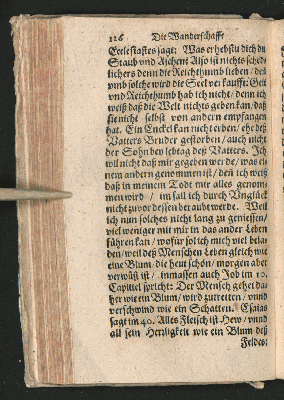 126 Die Wanderschafft
Ecclesiastes sagt: Was erhebstu dich du
Staub vnd Aschen? Also ist nichts sched-
lichers denn die Reichthumb lieben / den
vmb solche wird die Seel verkaufft: Gelt
vnd Reichthumb hab ich nicht / denn ich
weiß daß die Welt nichts geben kan / daß
sie nicht selbst von andern empfangen
hat. Ein Enckel kan nicht erben / ehe deß
Vatters Bruder gestorben / auch nicht
der Sohn bey lebtag deß Vatters. Ich
wil nicht daß mir gegeben werde / was ei-
nem andern genommen ist / denn ich weiß
daß in meinem Todt mir alles genom-
men wird / im fall ich durch Vnglück
nicht zuvor dessen beraubt werde. Weil
ich nun solches nicht lang zu geniessen /
viel weniger mit mir in das ander Leben
führen kan / wofür sol ich mich viel bela-
den / weil deß Menschen Leben gleich wie
eine Blum / die heut schön / morgen aber
verwüst ist / inmassen auch Job im 10.
Capittel spricht: Der Mensch gehet da-
her wie ein Blum / wird zutretten / vnnd
verschwind wie ein Schatten. Esaias
sagt im 40. Alles Fleisch ist Hew / vnnd
all sein Herrligkeit wie ein Blum deß
Feldes: